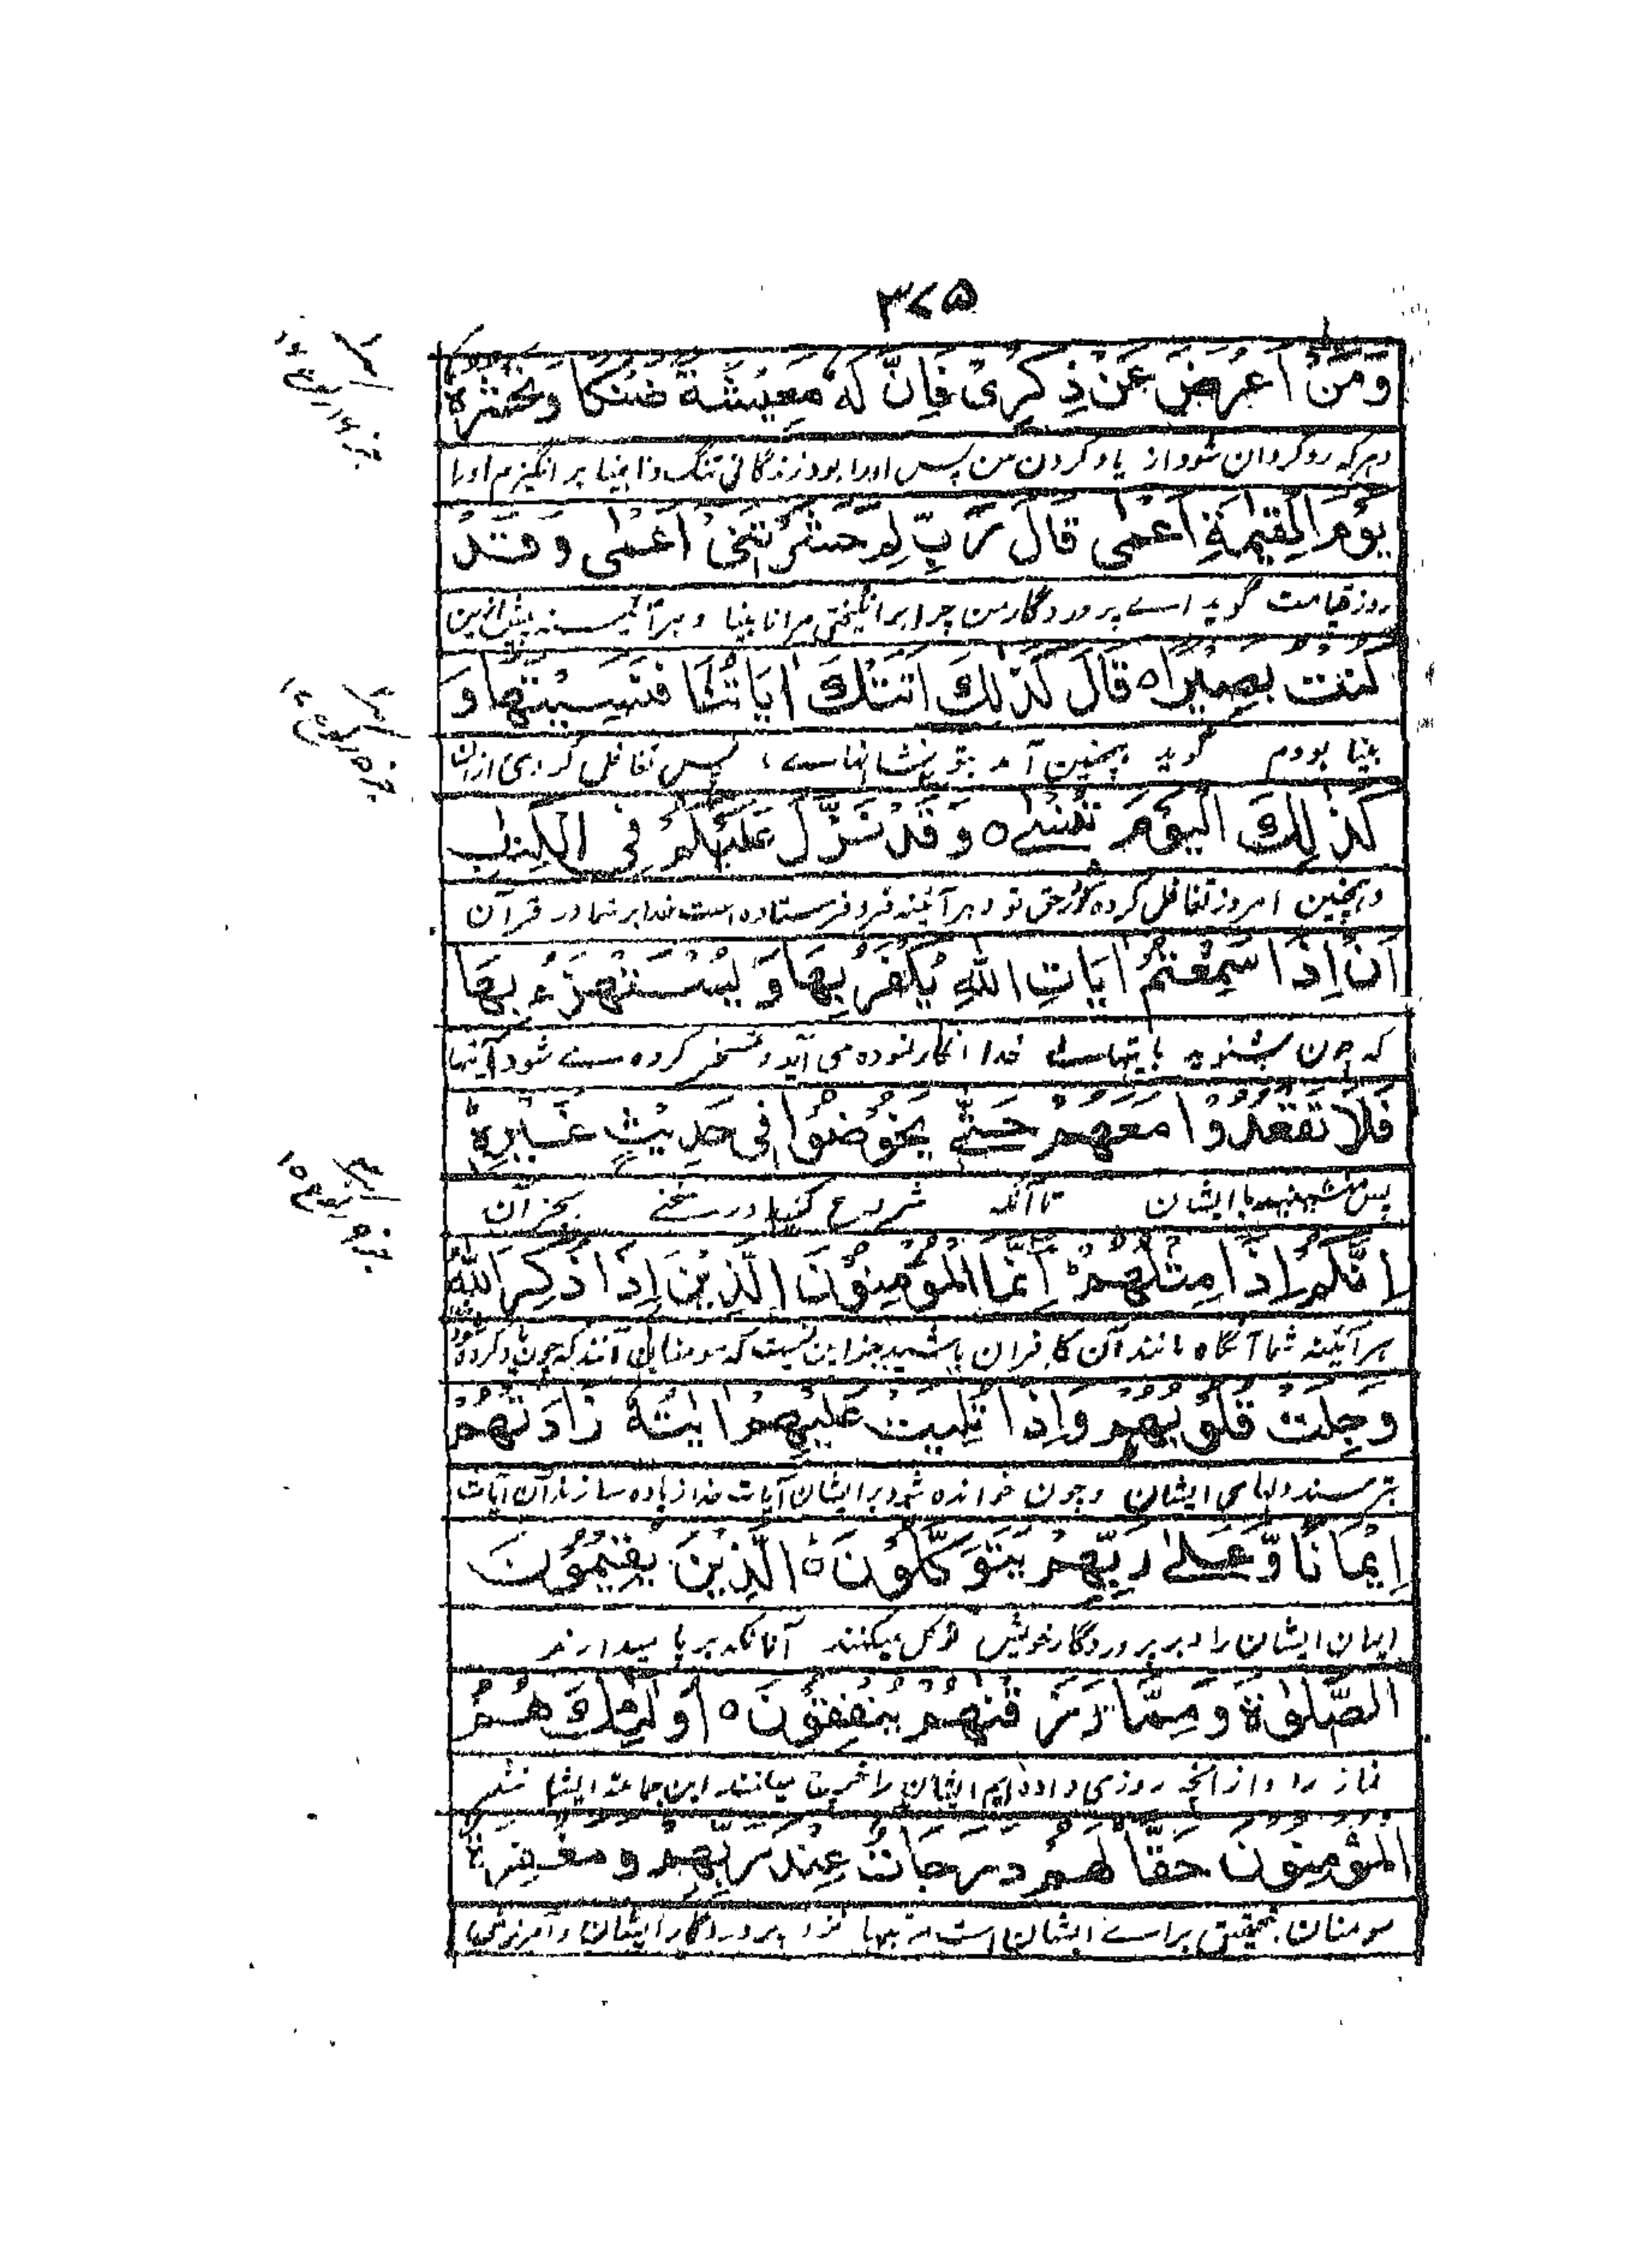 ۳۷۵
وَمَنْ اَعْرَضَ عَنْ ذِكْرِیْ فَاِنَّ لَهٗ مَعِيْشَةً ضَنْكًا وَنَحْشُرُهٗ
وہر کہ روگردان شود از یاد کردن من پس اورا بود زندگانی تنگ و نابینا بر انگیزم اورا
يَوْمَ الْقِيٰمَةِ اَعْمٰى قَالَ رَبِّ لِمَ حَشَرْتَنِیْ اَعْمٰى وَقَدْ
روز قیامت گوید اے پروردگار من چرا برانگیختی مرا نابینا و ہر آئینہ پیش ازین
كُنْتُ بَصِيْرًا ۝ قَالَ كَذٰلِكَ اَتَتْكَ اٰيَاتُنَا فَنَسِيْتَهَا وَ
بینا بودم گوید ہمچنین آمد بتو نشانہاے ما پس تغافل کردی ازان
كَذٰلِكَ الْيَوْمَ تُنْسٰے ۝ وَقَدْ نَزَّلَ عَلَيْكُمْ فِی الْكِتٰبِ
وہمچنین امروز تغافل کردہ شود در حق تو وہر آئینہ فرو فرستادہ است خدا بر شما در قرآن
اَنْ اِذَا سَمِعْتُمْ اٰيَاتِ اللّٰهِ يُكْفَرُ بِهَا وَيُسْتَهْزَءُ بِهَا
کہ چون بشنوید بآیتہاے خدا انکار نمودہ می آید و تمسخر کردہ مے شود بآنہا
فَلَا تَقْعُدُوْا مَعَهُمْ حَتّٰے يَخُوْضُوْا فِی حَدِيْثٍ غَيْرِهٖ
پس منشینید با ایشان تا آنکہ شروع کنند در سخنے بجز آن
اِنَّكُمْ اِذًا مِثْلُهُمْ اِنَّمَا الْمُؤْمِنُوْنَ الَّذِيْنَ اِذَا ذُكِرَ اللّٰهُ
ہر آئینہ شما آنگاہ مانند آن کافران باشید جز این نیست کہ مومنان آنند کہ چون یاد کردہ شود خدا
وَجِلَتْ قُلُوْبُهُمْ وَاِذَا تُلِيَتْ عَلَيْهِمْ اٰيٰتُهٗ زَادَتْهُمْ
بترسند دلہای ایشان و چون خواندہ شود بر ایشان آیات خدا زیادہ سازند آن آیات
اِيْمَانًا وَّعَلٰے رَبِّهِمْ يَتَوَكَّلُوْنَ ۝ الَّذِيْنَ يُقِيْمُوْنَ
ایمان ایشان را و بر پروردگار خویش توکل میکنند آنانکہ بر پا میدارند
الصَّلٰوةَ وَمِمَّا رَزَقْنٰهُمْ يُنْفِقُوْنَ ۝ اُولٰٓئِكَ هُمُ
نماز را و از آنچہ روزی دادہ ایم ایشان را خرچ میکنند این جماعہ ایشانند
الْمُؤْمِنُوْنَ حَقًّا لَهُمْ دَرَجَاتٌ عِنْدَ رَبِّهِمْ وَمَغْفِرَةٌ
مومنان بتحقیق براے ایشان است مرتبہا نزد پروردگار ایشان و آمرزش